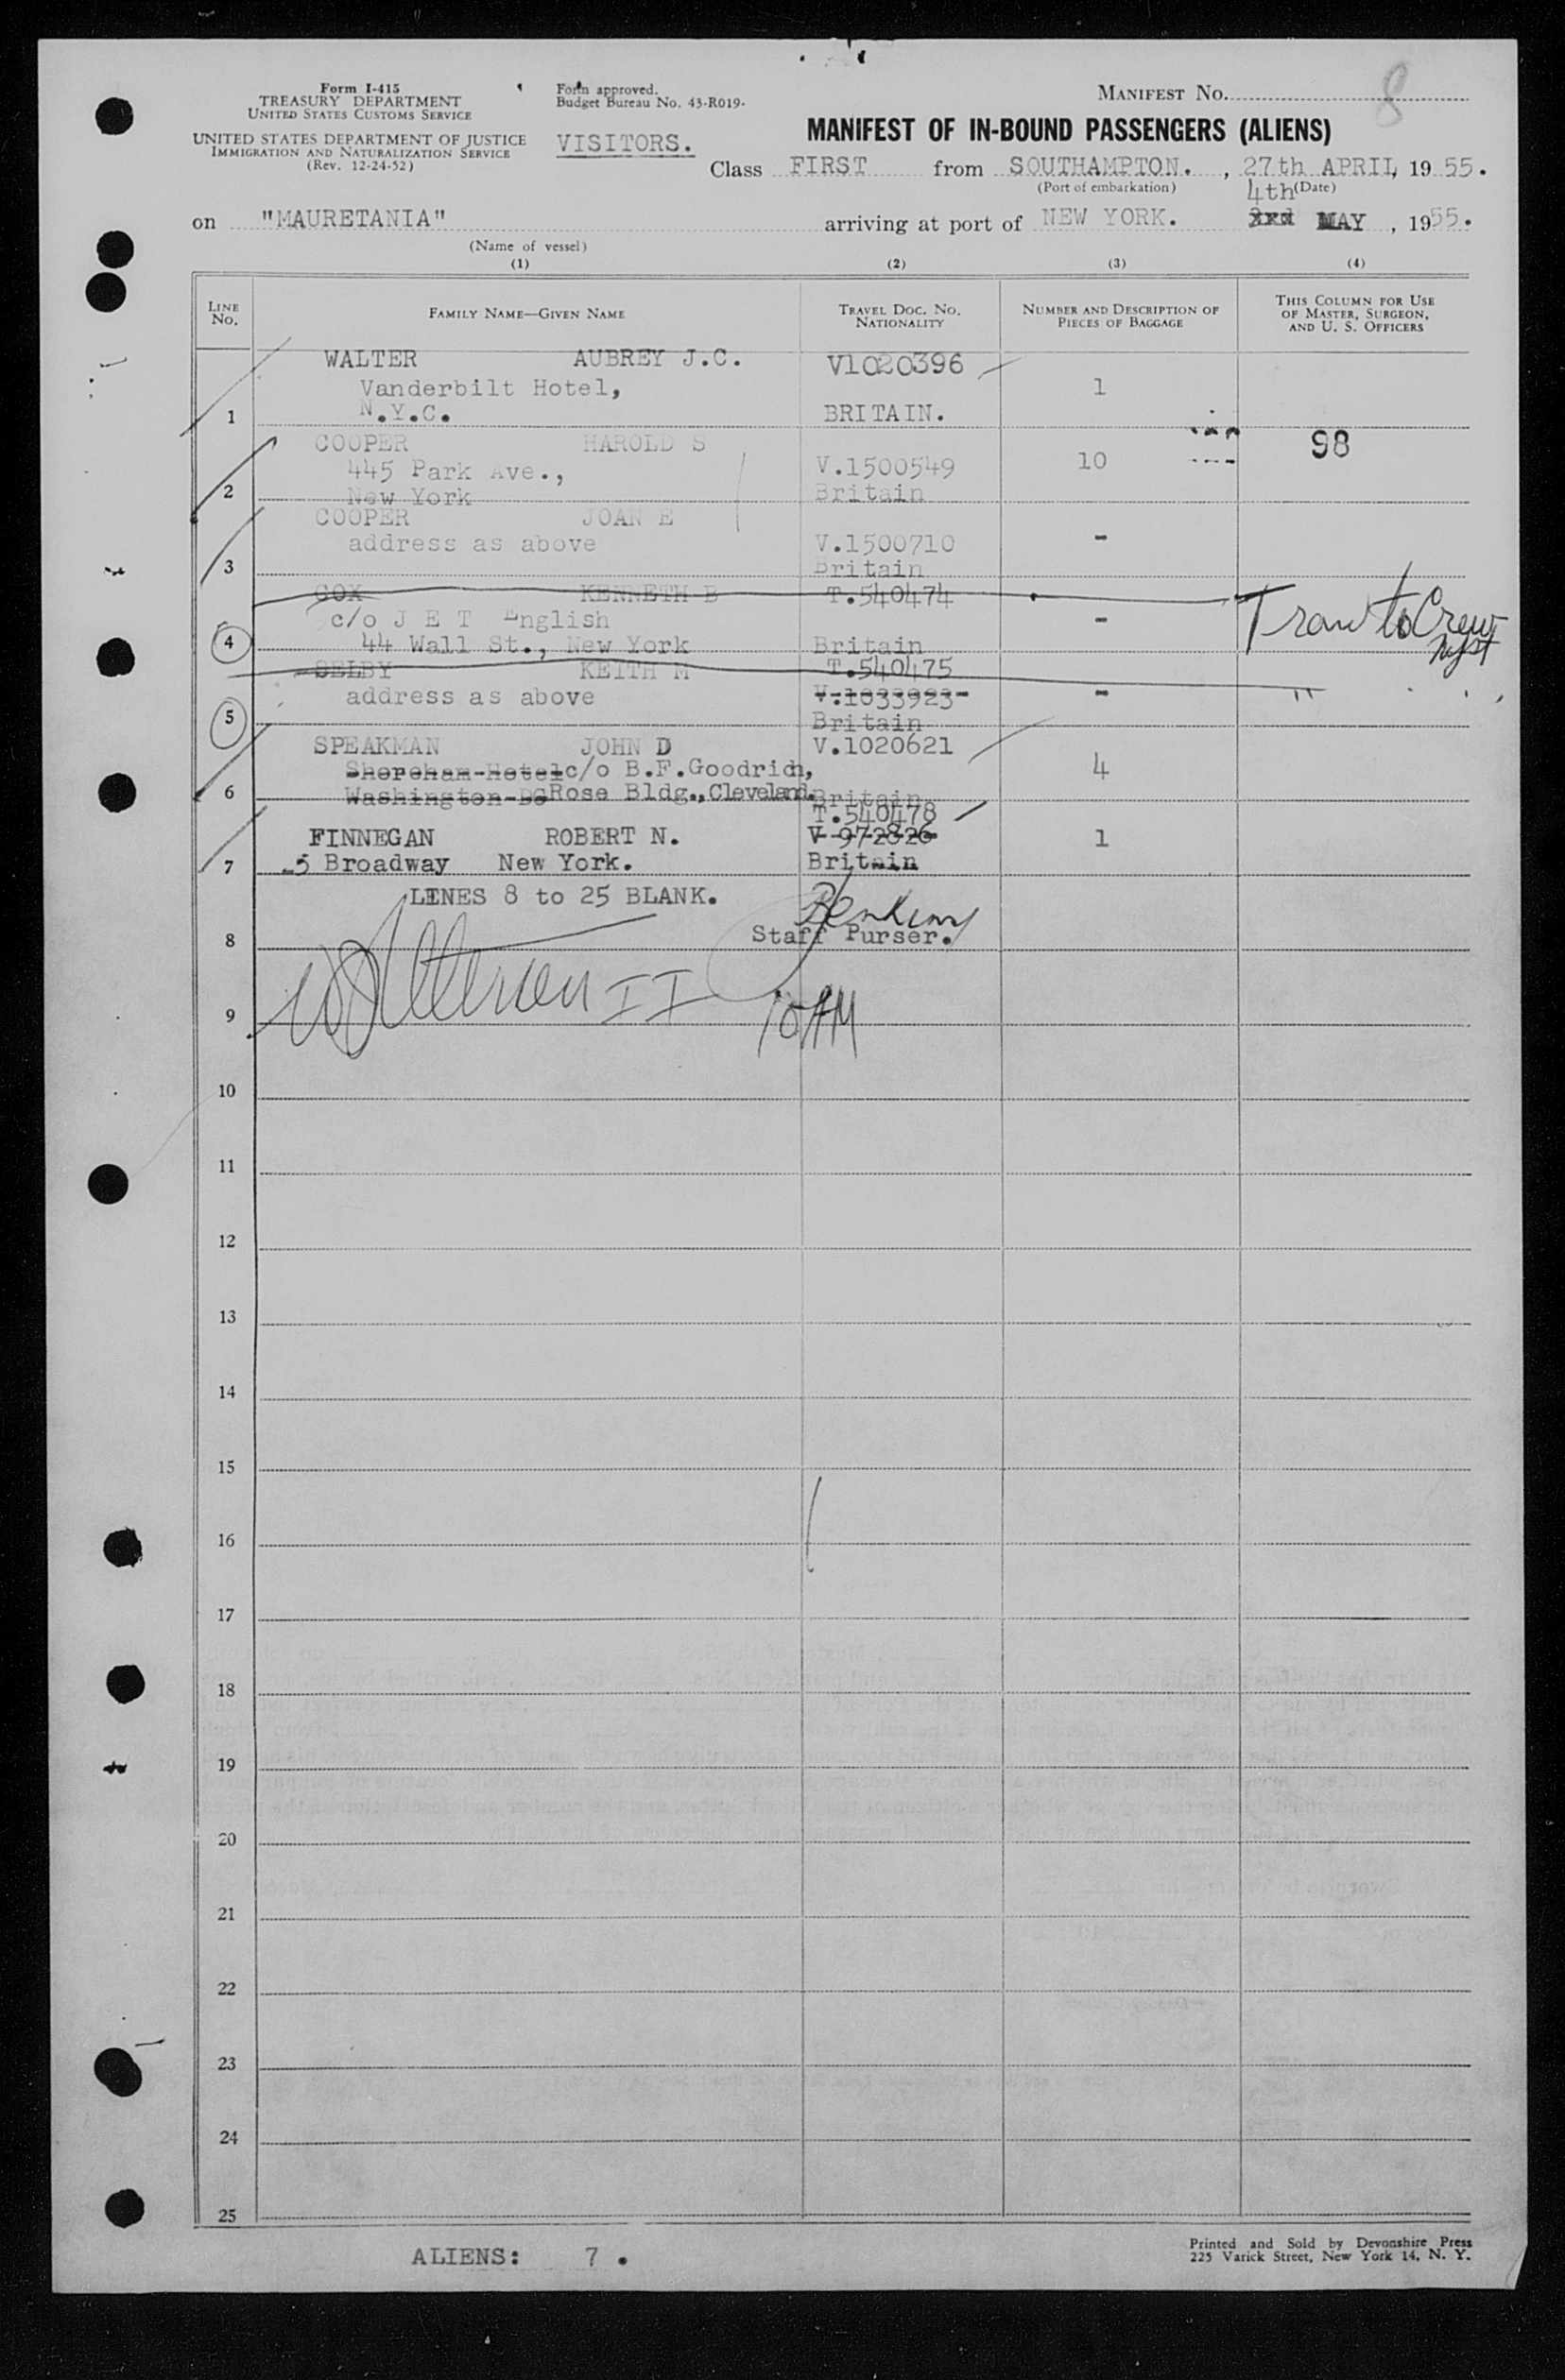 8
Form I-415
TREASURY DEPARTMENT
UNITED STATES CUSTOMS SERVICE
UNITED STATES DEPARTMENT OF JUSTICE
IMMIGRATION AND NATURALIZATION SERVICE
(Rev. 12-24-52)
Form approved.
Budget Bureau No. 43-R019-
VISITORS.
MANIFEST NO.
MANIFEST OF IN-BOUND PASSENGERS (ALIENS)
Class FIRST from SOUTHAMPTON. , 27th APRIL, 1955.
(Port of embarkation) (Date)
4th
on "MAURETANIA" arriving at port of NEW YORK. 3rd MAY , 1955.
(Name of vessel)
(1) (2) (3) (4)
LINE NO.
FAMILY NAME—GIVEN NAME
TRAVEL DOC. NO. NATIONALITY
NUMBER AND DESCRIPTION OF PIECES OF BAGGAGE
THIS COLUMN FOR USE OF MASTER, SURGEON, AND U. S. OFFICERS
WALTER AUBREY J.C. V1020396
Vanderbilt Hotel, 1
1 N.Y.C. BRITAIN.
COOPER HAROLD S 98
445 Park Ave., V.1500549 10
2 New York Britain
COOPER JOAN E
address as above V.1500710 -
3 Britain
COX KENNETH B T.540474
c/o J E T English - to Crew
4 44 Wall St., New York Britain
SELBY KEITH M T.540475
address as above V.1033923 - "
5 Britain
SPEAKMAN JOHN D V.1020621
Shoreham-Hotel c/o B.F.Goodrich, 4
6 Washington-DC Rose Bldg., Cleveland. Britain
T.540478
FINNEGAN ROBERT N. V 972826 1
7 5 Broadway New York. Britain
LINES 8 to 25 BLANK.
8 Staff Purser.
9 II 10 AM
10
11
12
13
14
15
16
17
18
19
20
21
22
23
24
25
ALIENS: 7 .
Printed and Sold by Devonshire Press
225 Varick Street, New York 14, N. Y.